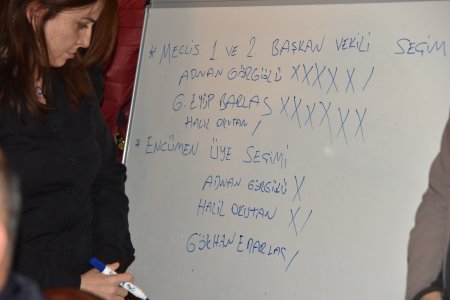 * MECLİS 1. VE 2. BAŞKAN VEKİLİ SEÇİM
ADNAN GÖRGÜLÜ XXXXX/
G. EYÜP BARLAS XXXXXX
HALİL OKUTAN /
* ENCÜMEN ÜYE SEÇİMİ
ADNAN GÖRGÜLÜ X
HALİL OKUTAN X/
GÖKHAN E BARLAS /